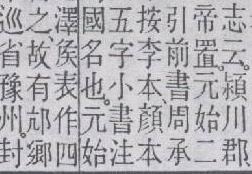 志云。潁川郡
帝置。元始二
引前書周承
按李本、顏本
五字小書注
國名也。元始
澤矦表作四
之、故有邟鄉
巡省豫州。封